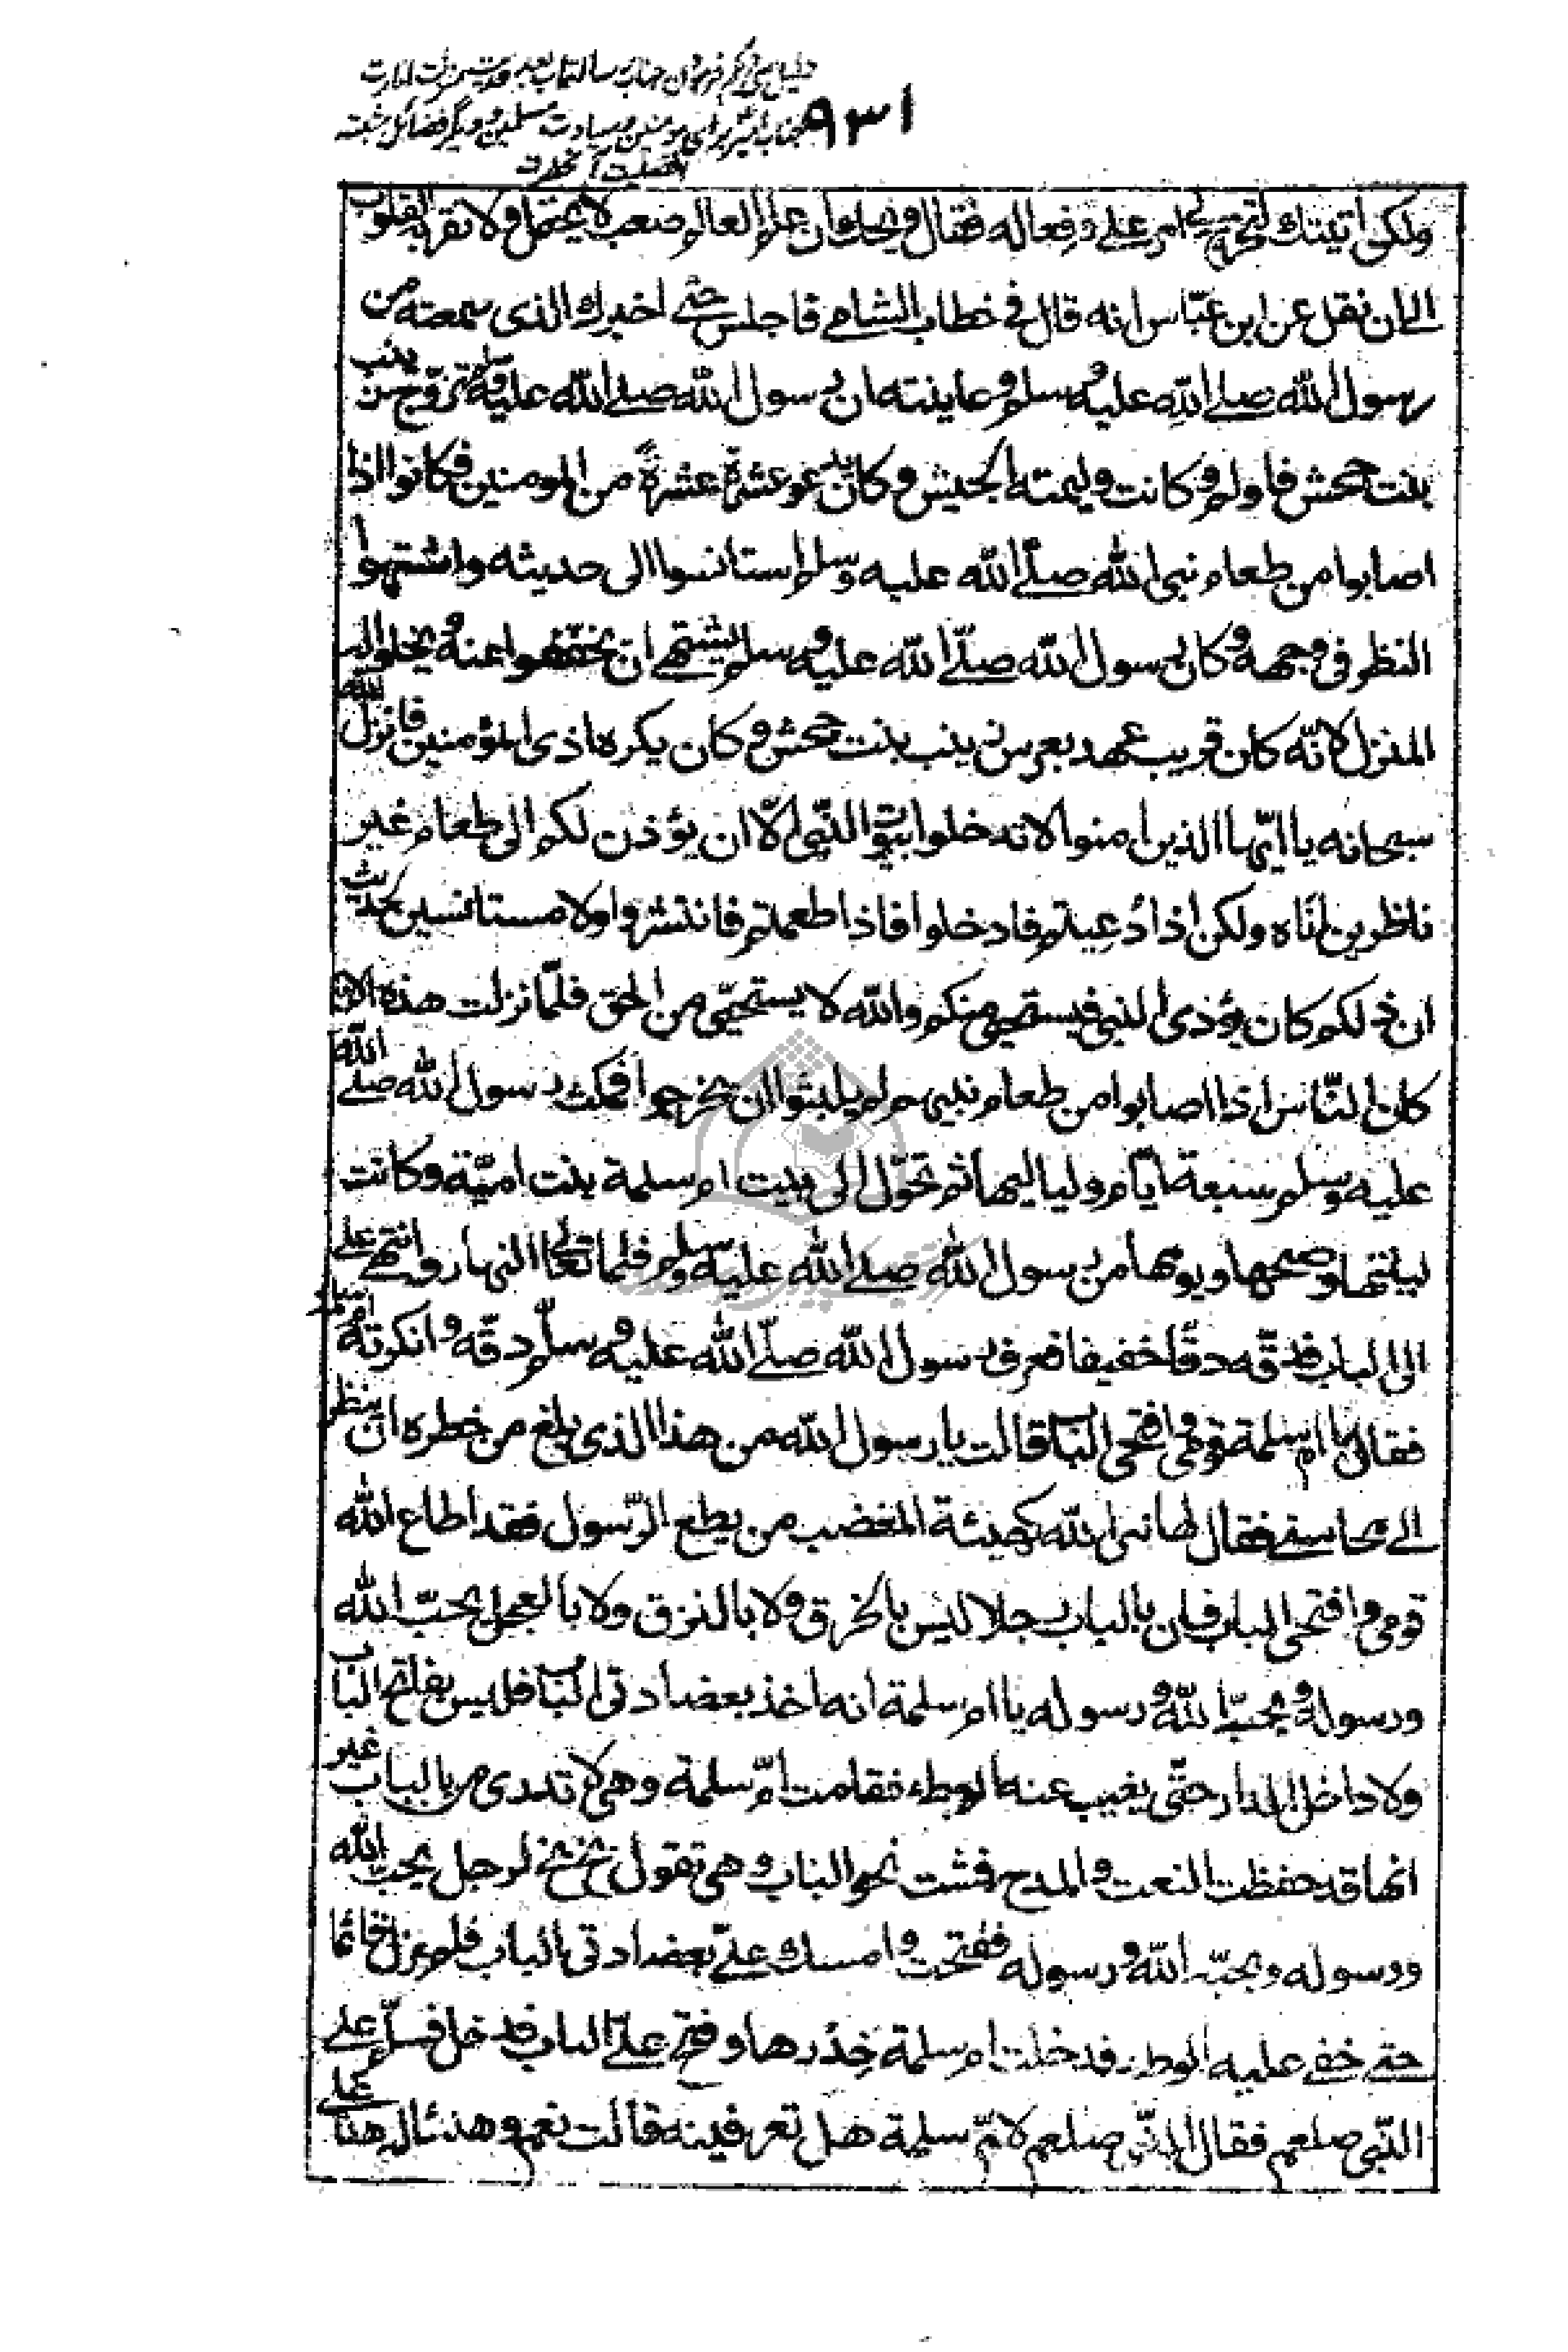 دلیل سی و یکم فرمودن جناب رسالتمآب بعد حدیث منزلت امارت
جناب امیر برای مومنین و سیادت مسلمین و دیگر فضائل مثبته
افضلیت آنحضرت
۹۳۱
ولكن اتيتك لتخبرني امر علي وفعاله فقال ويحك ان علم العالم صعب لا يحتمل ولا تقر به القلوب
الى ان نقل عن ابن عبّاس انه قال في خطاب الشامي فاجلس حتى اخبرك الذى سمعته من
رسول الله صلى الله عليه وسلم وعاينته ان رسول الله صلى الله عليه وسلم تزوّج زينب
بنت جحش فاولم وكانت وليمته الحيس وكان يدعو عشرة عشرةً من المومنين فكانوا اذا
اصابوا من طعام نبى الله صلّى الله عليه وسلم استانسوا الى حديثه واشتهوا
النظر فى وجهه وكان رسول الله صلّى الله عليه وسلم يشتهى ان يخففوا عنه ويخلو له
المنزل لانّه كان قريب عهد بعرس زينب بنت جحش وكان يكره اذى المؤمنين فانزل الله
سبحانه يا ايّها الذين امنوا لا تدخلوا بيوت النّبى الّا ان يؤذن لكم الى طعام غير
ناظرين اناه ولكن اذا دُعِيتم فادخلوا فاذا طعمتم فانتشروا ولا مستانسين لحديث
ان ذلكم كان يؤذى النبى فيستحيى منكم والله لا يستحيى من الحق فلمّا نزلت هذه الاية
كان النّاس اذا اصابوا من طعام نبيهم لم يلبثوا ان يخرجوا فمكث رسول الله صلى الله
عليه وسلم سبعة ايّام ولياليها ثم تحوّل الى بيت ام سلمة بنت اميّة وكانت
ليلتها وصبحها ويومها من رسول الله صلى الله عليه وسلم فلما تعالى النهار وانتهى على
الى الباب فدقّه دقًا خفيفا فعرف رسول الله صلّى الله عليه وسلّم دقّه وانكرته ام سلمة
فقال لها يا ام سلمة قومى وافتحى الباب قالت يا رسول الله من هذا الذى بلغ من خطره ان ينظر
الى محاسنى فقال لها نبى الله كهيئة المغضب من يطع الرّسول فقد اطاع الله
قومى وافتحى الباب فان بالباب رجلا ليس بالخرق ولا بالنزق ولا بالعجل يحبّ الله
ورسوله ويحبّه الله ورسوله يا ام سلمة انه اخذ بعضادتى الباب فليس بفاتح الباب
ولا داخل الدار حتّى يغيب عنه الوطء فقامت امّ سلمة وهى لا تدرى من بالباب غير
انها قد حفظت النعت والمدح فمشت نحو الباب وهى تقول بخ بخ لرجل يحب الله
ورسوله ويحبّه الله ورسوله ففتحت وامسك علىّ بعضادتى الباب فلم يزل قائما
حتى خفى عليه الوطء فدخلت ام سلمة خِدْرها وفتح علىّ الباب فدخل فسلّم على
النّبى صلعم فقال النبى صلعم لامّ سلمة هل تعرفينه قالت نعم وهنئا له هذا على